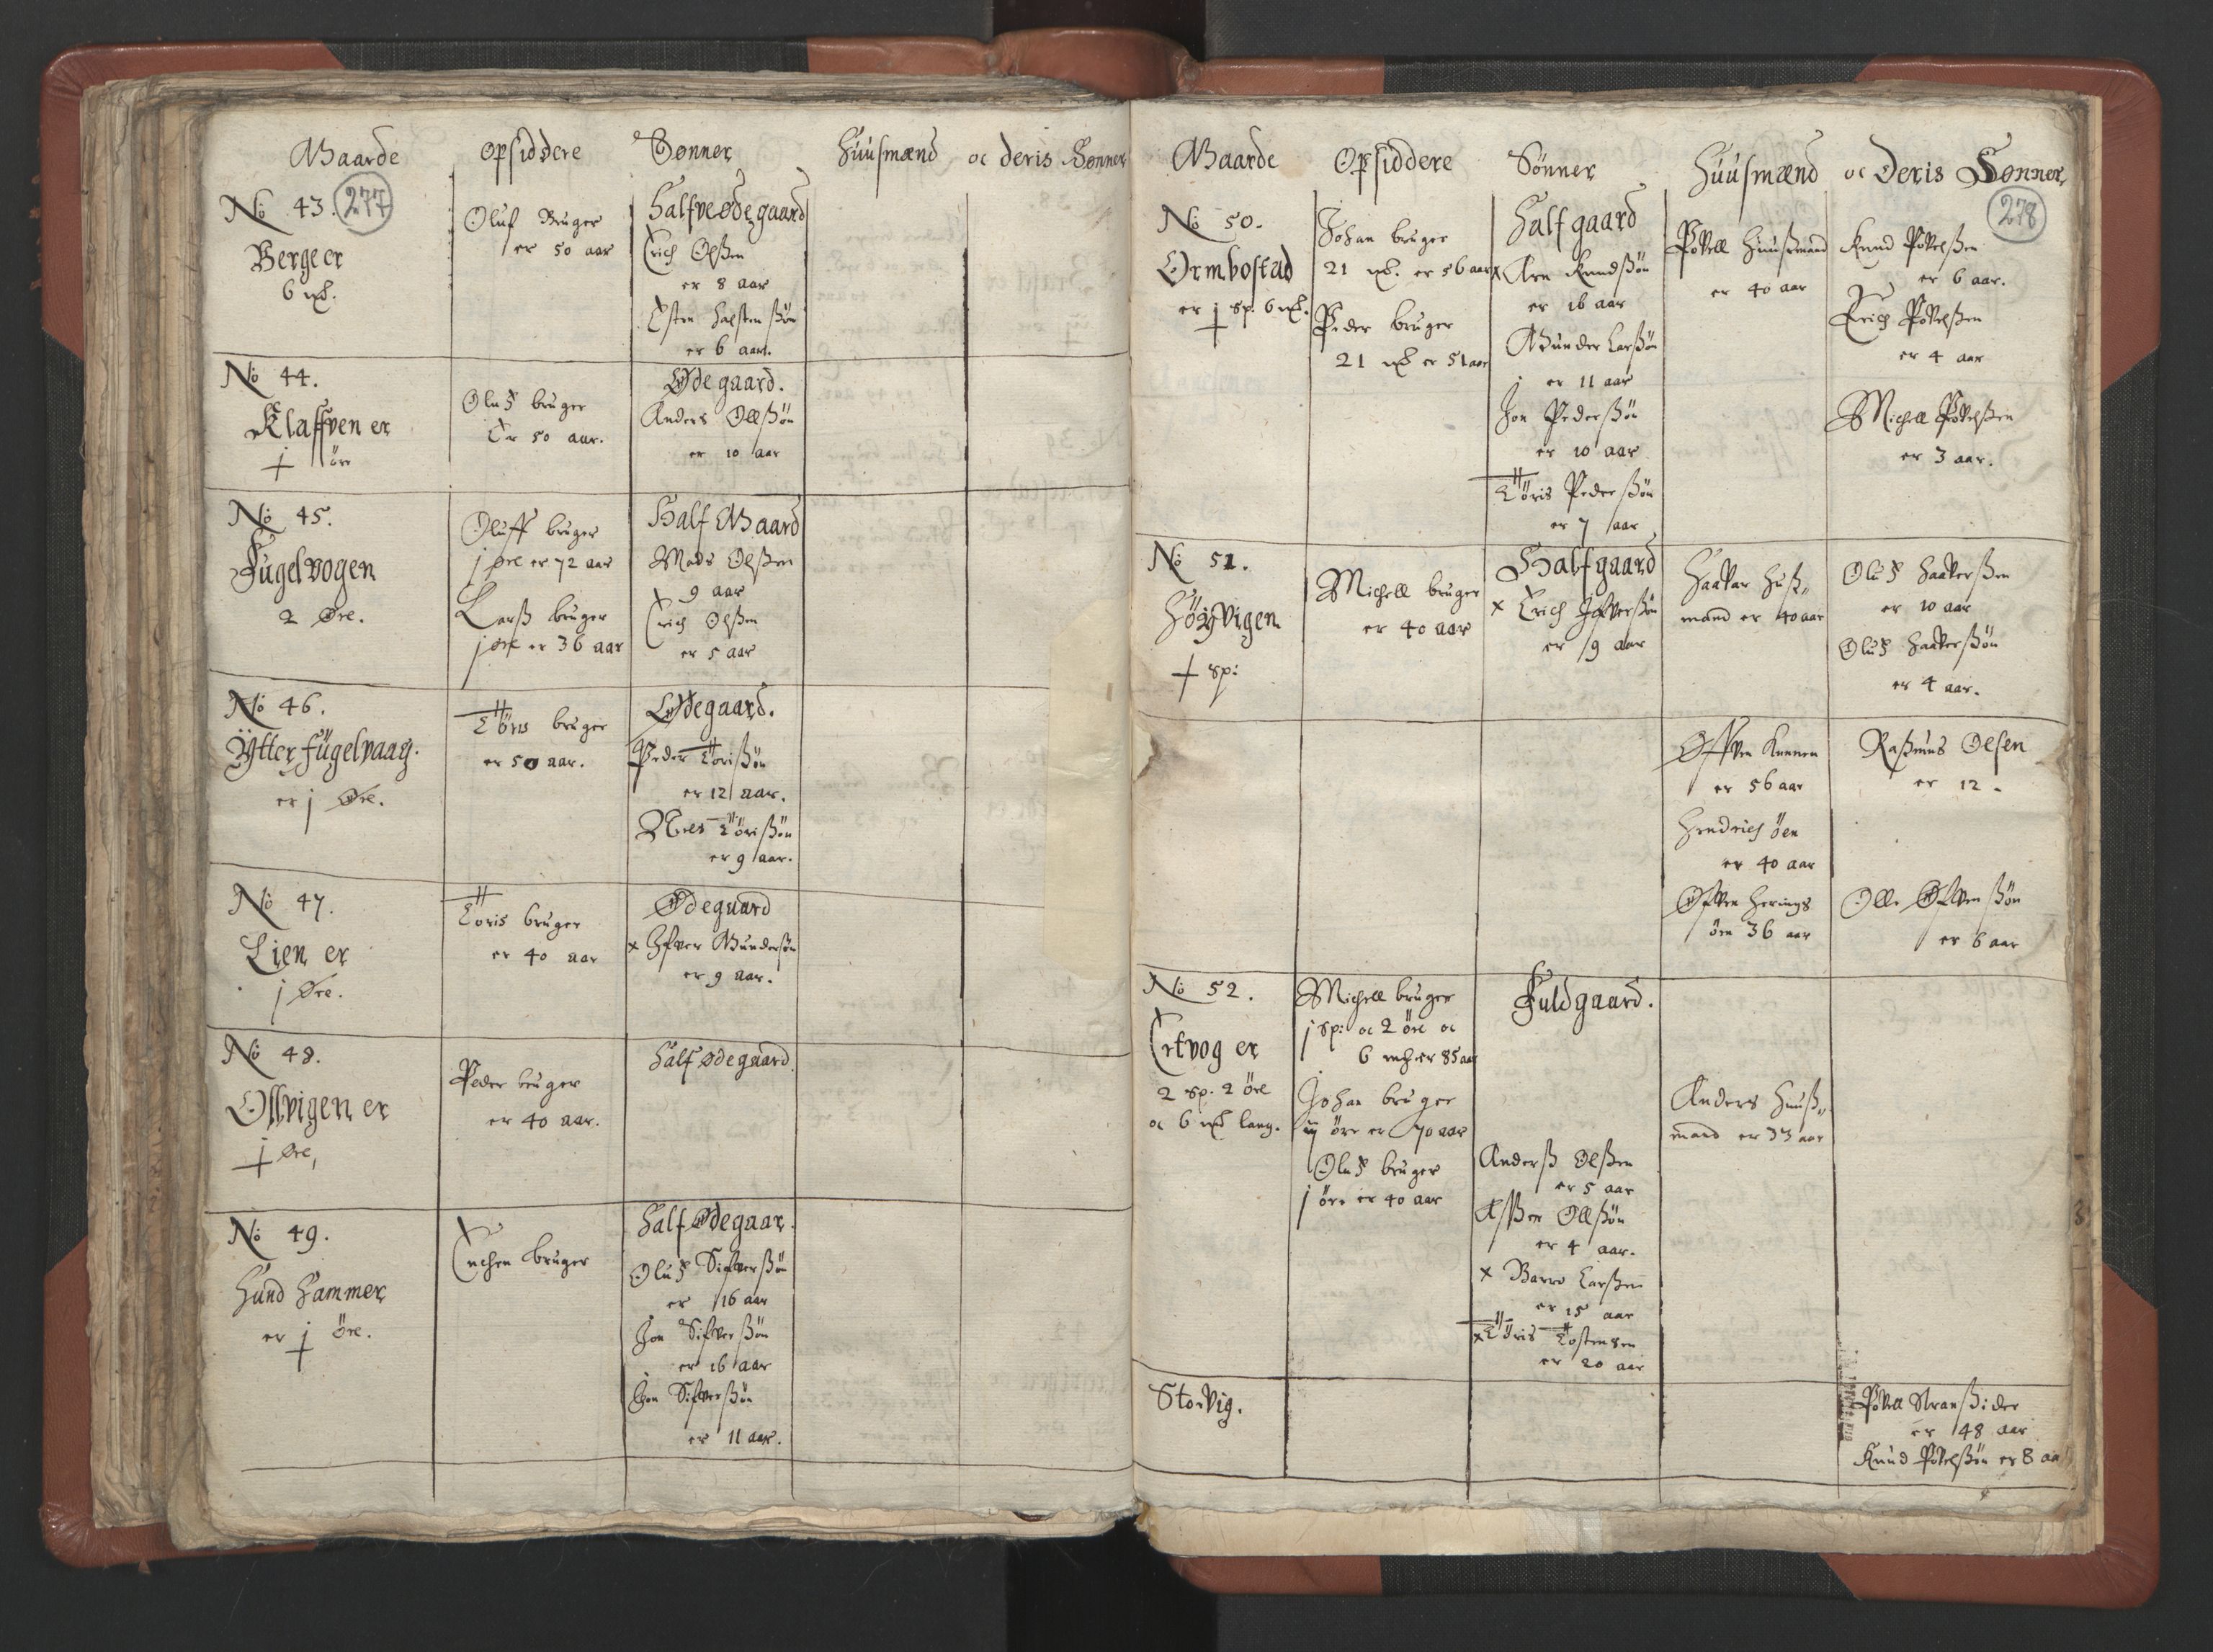 Gaarde opsiddere Sønner Huusmænd oc deris Sønner
No 43. 277
Berge er
6 mk.
Oluf Bruger
er 50 aar
Halfve Ødegaard
Erich Olßen
er 8 aar
Esten Halstenßøn
er 6 aar.
No 44.
Klaffven er
j öre
Oluf bruger
Er 50 aar.
Ødegaard.
Anders Ollßön
er 10 aar
No 45.
Fugelvogen
2 Øre.
Oluff bruger
j øre er 72 aar
Larß bruger
j øre er 36 aar
Half Gaard
Mads Olßen
9 aar
Erich Olßen
er 5 aar
No 46.
Ytter fügelvaag.
er j Øre.
Töris bruger
er 50 aar.
Ødegaard.
Peder Torißön
er 12 aar.
Nies Törißön
er 9 aar.
No 47.
Lien er
j Øre.
Toris bruger
er 40 aar
Ødegaard
x Ifver Gundersøn
er 9 aar.
No 48.
Ollvigen er
j Øre,
Peder bruger
er 40 aar.
Half Ødegaard.
No 49.
Hund Hammer
er j öre.
Enchen bruger
Half Ødegaar.
Oluf Sifverßön
er 16 aar
Jon Sifverßön
er 16 aar
Jon Sifverßön
er 11 aar.
Gaarde Opsiddere Sönner Huusmænd oc Deris Sønner
278
No 50.
Ormbostad
er j sp. 6 mk.
Johan bruger
21 mk. er 56 aar
Peder bruger
21 mk er 51 aar
Half gaard
x Arn Knudßön
er 16 aar
Gunder Larßön
er 11 aar
Jon Pederßön
er 10 aar
Töris Pederßön
er 7 aar
Povell Huußmand
er 40 aar
Knud Povelßen
er 6 aar.
Erich Povelßen
er 4 aar
Michell Povelßen
er 3 aar.
No 51.
Höyvigen
sp:
Michell bruger
er 40 aar
Halfgaard
x Erich Ifverßön
er 9 aar
Haakar Huß„
mand er 40 aar
Oluf Haakerßen
er 10 aar
Oluf Haakerßön
er 4 aar.
Öffven
er 56 aar
Raßmus Olsen
er 12.
Hendrich öen
er 40 aar
Öfven Herings
öen 36 aar
Olle Öfvenßön
er 6 aar
No 52.
Ertvog er
2 sp. 2 öre
oc 6 mk lang.
Michell bruger
j sp: oc 2 öre oc
6 mk er 85 aar
Johan bruger
ij öre er 70 aar
Oluf bruger
j öre er 40 aar
Fuldgaard.
Anders Huuß„
mand er 33 aar
Anderß Olßen
er 5 aar
Aßßer Ollßön
er 4 aar.
x Baro Larßen
er 15 aar
x Töris Tostensen
er 20 aar
Storvig.
Povell Stranßider
er 48 aar
Knud Povelßön er 8 aa